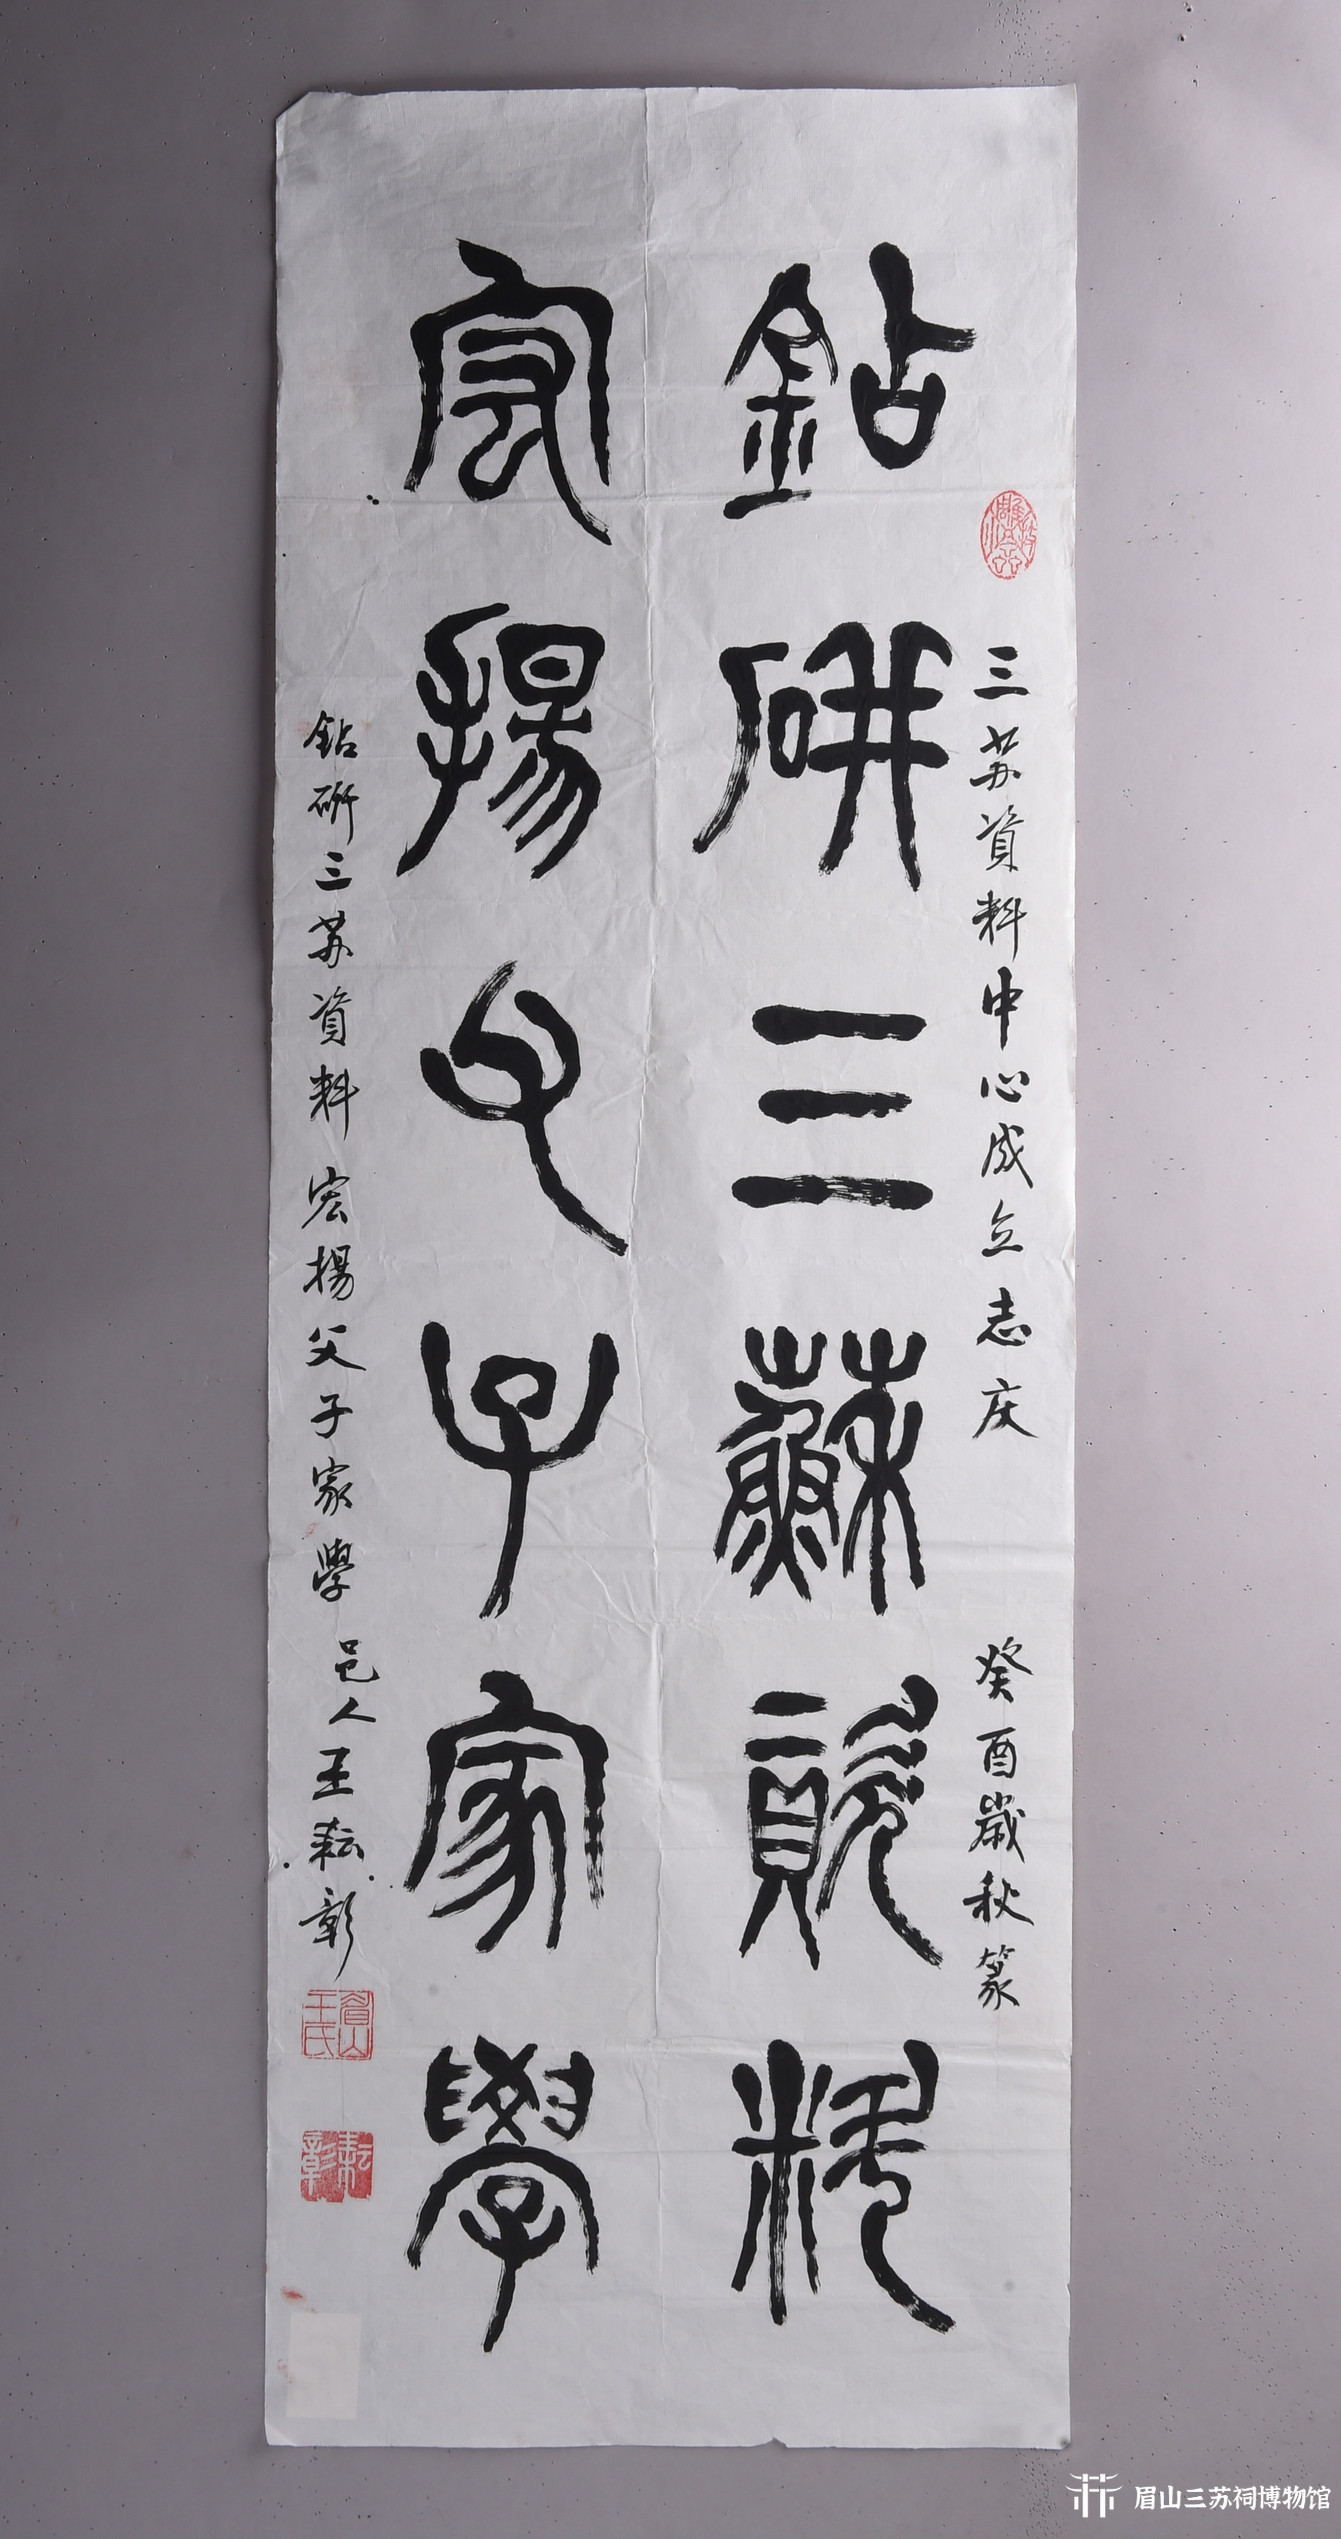 三苏資料中心成立志庆 癸酉歳秋篆
鉆研三蘇資料
宏揚父子家學
鉆研三苏資料 宏揚父子家學 邑人王耘彰
眉山王氏
耘彰
眉山三苏祠博物馆